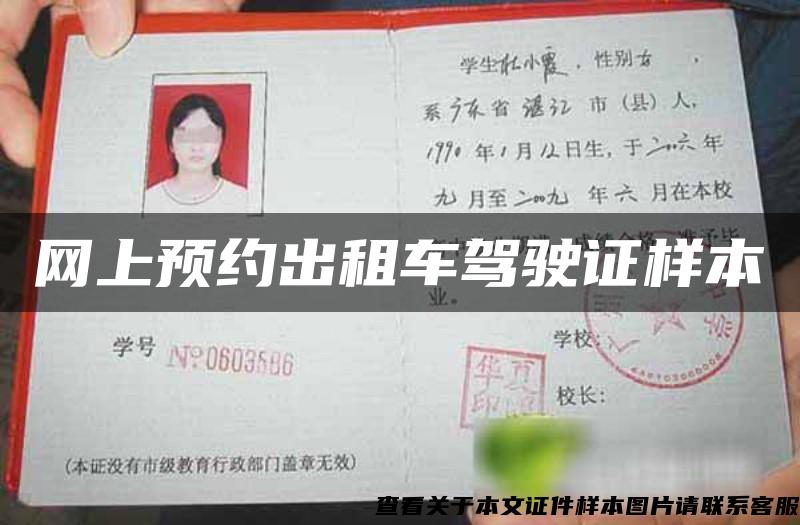 学生杜小霞，性别女，
系广东省湛江市（县）人，
1990年1月12日生，于二00六年
九月至二00九年六月在本校
网上预约出租车驾驶证样本
业。
学号 No:0603586
学校：
华夏
印
校长：
(本证没有市级教育行政部门盖章无效)
查看关于本文证件样本图片请联系客服